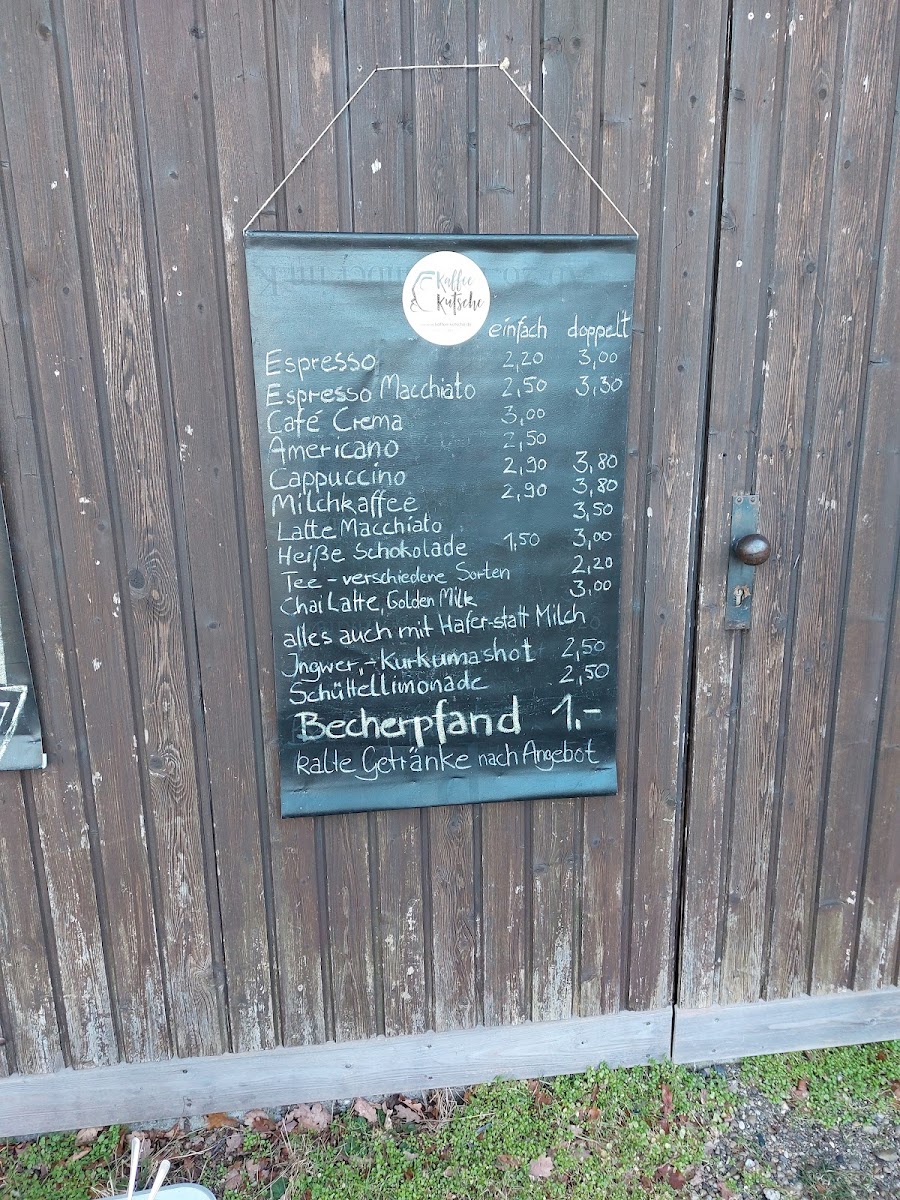 Kaffee
Kutsche
einfach doppelt
Espresso 2,20 3,00
Espresso Macchiato 2,50 3,30
Café Crema 3,00
Americano 2,50
Cappuccino 2,90 3,80
Milchkaffee 2,90 3,80
Latte Macchiato 3,50
Heiße Schokolade 1,50 3,00
Tee - verschiedene Sorten 2,20
Chai Latte, Golden Milk 3,00
alles auch mit Hafer- statt Milch
Ingwer,- Kurkumashot 2,50
Schüttellimonade 2,50
Becherpfand 1,-
kalte Getränke nach Angebot